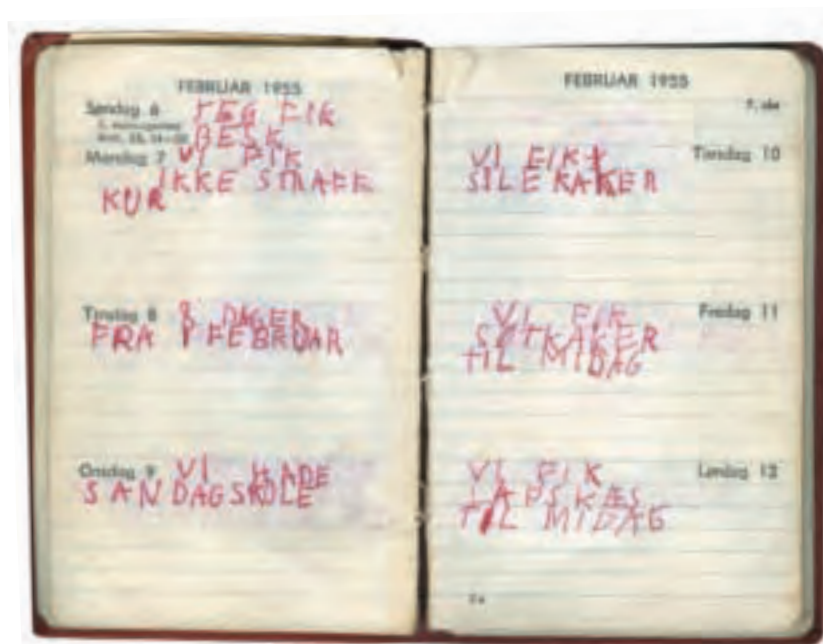 FEBRUAR 1955
Søndag 6
JEG FIK
BESK
Mandag 7 VI FIK
IKKE STRAFF
KUR
Tirsdag 8 8 DAGER
FRA 1 FEBRUAR
Onsdag 9 VI HADE
SANDAGSKOLE
FEBRUAR 1955
7. uke
VI FIKK Torsdag 10
SILEKAKER
VI FIK Fredag 11
TIL MIDAG
VI FIK Lørdag 12
LAPSKÆS
TIL MIDAG